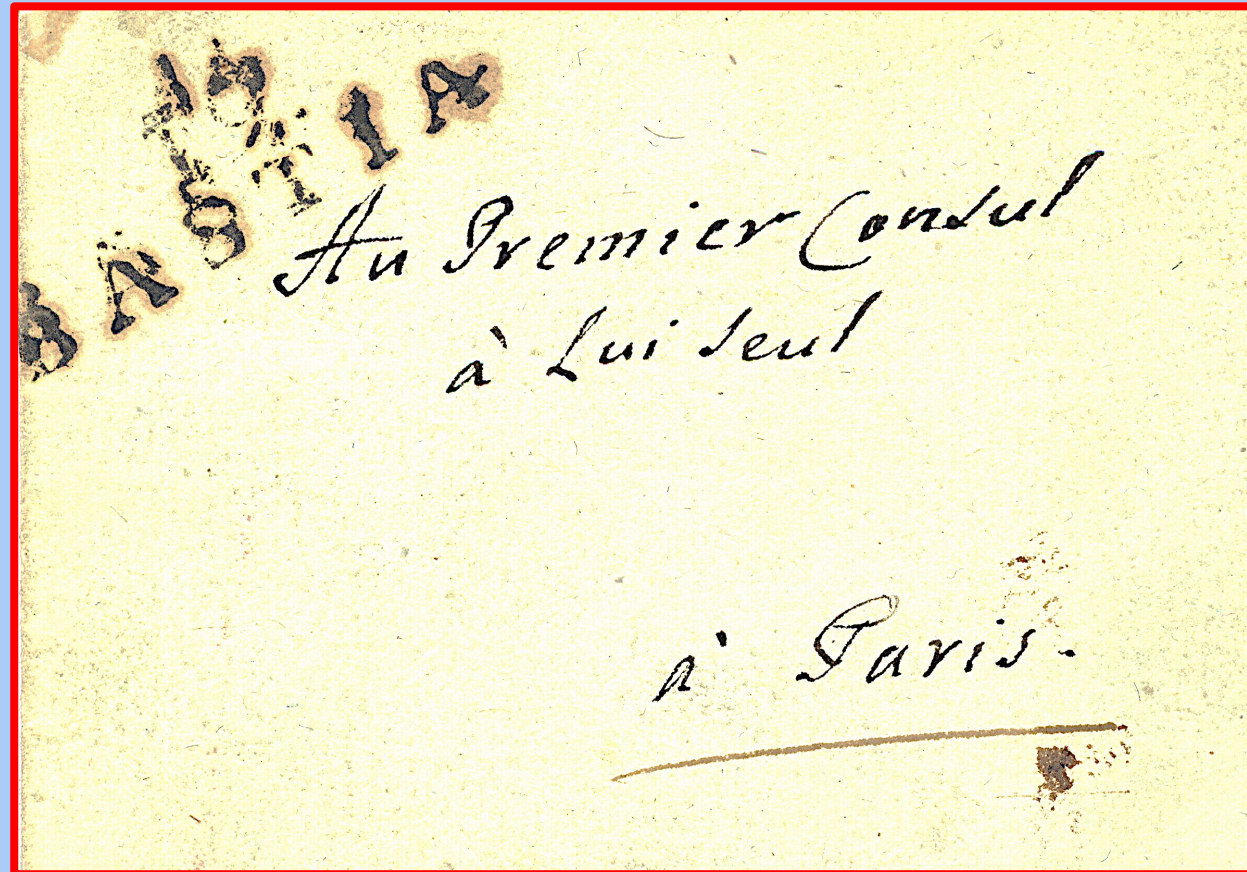 BASTIA
Au Premier Consul
à Lui Seul
à Paris.